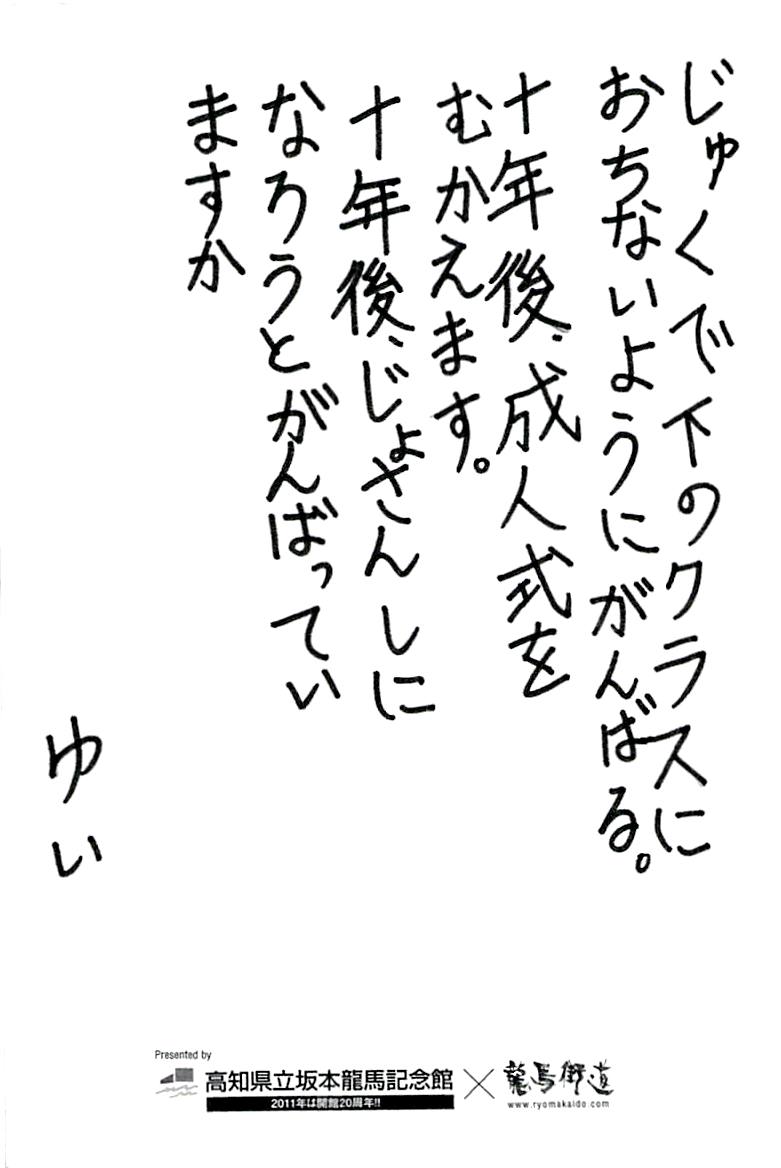 じゅくで下のクラスに
おちないようにがんばる。
十年後、成人式を
むかえます。
十年後、じょさんしに
なろうとがんばってい
ますか
ゆい
Presented by
高知県立坂本龍馬記念館
2011年は開館20周年!!
×
龍馬街道
www.ryomakaido.com